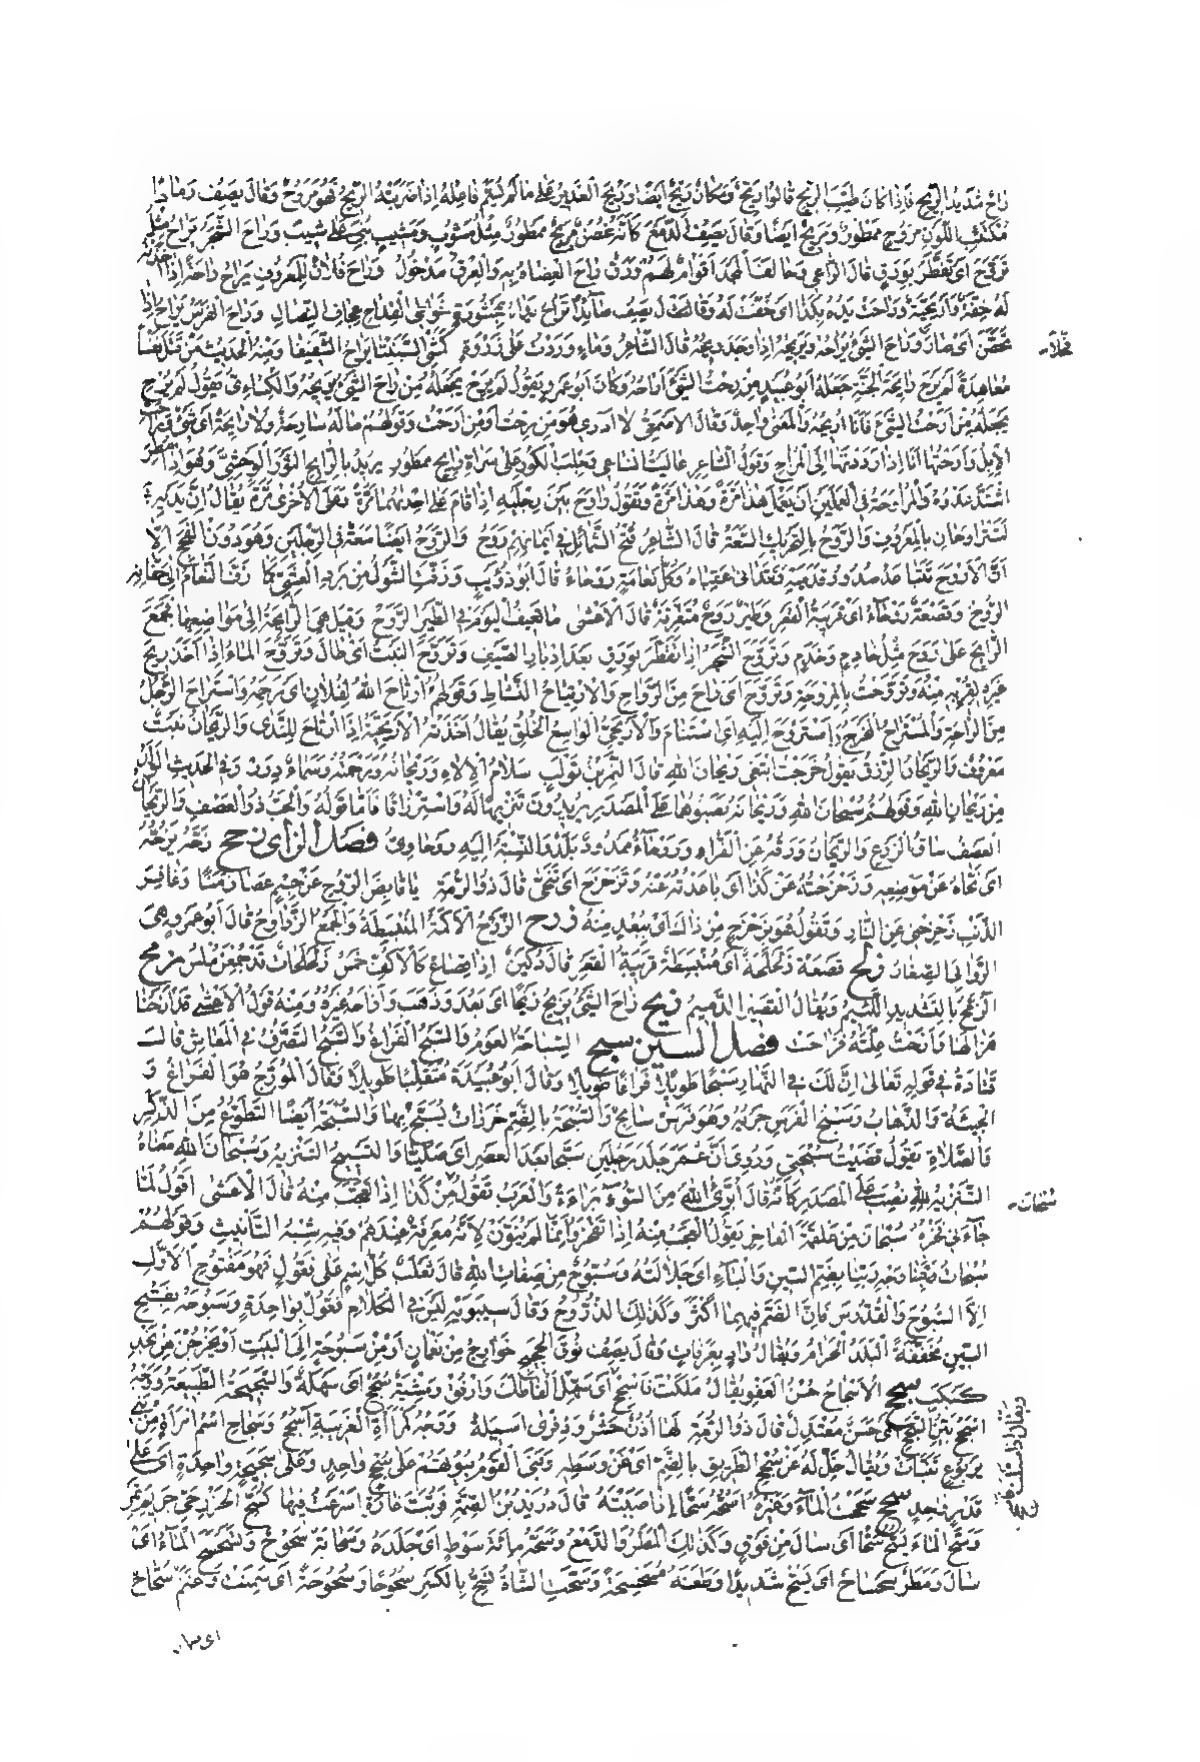 راح شديد الريح فاذا كان طيب الريح قالوا ريح ومكان ريح ايضا وريح الغدير على ما لم يسم فاعله اذا ضربته الريح فهو مروح وقال يصف رمادا
مكتئب اللون مروح ممطور ومريح ايضا وقال يصف الدمع كانه غصن مريح ممطور مثل مشوب ومشيب بني على شيب وراح الشجر يراح مثل
تروح اي تفطر بورق قال الراعي وخالف المجد اقوام لهم ورق راح العضاه به والعرق مدخول وراح فلان للمعروف يراح راحة اذا اخذته
له خفة واريحية وراحت يده بكذا اي خفت له وقال يصف صائدا تراح يداه بمحشورة خواظي القداح عجاف النصال وراح الفرس يراح اذا
تحصن اي صار وراح الشيء يراحه ويريحه اذا وجد ريحه قال الشاعر وماء وردت على زورة كمشي السبنتى يراح الشفيفا ومنه الحديث من قتل نفسا
معاهدة لم يرح رايحة الجنة جعله ابو عبيد من رحت الشيء اراحه وكان ابو عمرو يقول لم يرح يجعله من راح الشيء يريحه والكسائي يقول لم يرح
يجعله من ارحت الشيء فانا اريحه والمعنى واحد وقال الاصمعي لا ادري هو من رحت او من ارحت وقولهم ما له سارحة ولا رايحة اي شيء وراحت
الابل وارحتها انا اذا رددتها الى المراح وقول الشاعر عاليت انساعي وجلب الكور على سراة رايح ممطور يريد بالرايح الثور الوحشي وهو اذا مطر
اشتد عدوه والمراوحة في العملين ان يعمل هذا مرة وهذا مرة وتقول راوح بين رجليه اذا قام على احديهما مرة وعلى الاخرى مرة يقال ان يديه
لتتراوحان بالمعروف والروح بالتحريك السعة قال الشاعر فتح الشمائل في ايمانهم روح والروح ايضا سعة في الرجلين وهو دون الفحج الا
ان الاروح تتباعد صدور قدميه وتتدانى عقباه وكل نعامة روحاء قال ابو ذؤيب وزفت الشول من برد العشي كما زف النعام الى حفانه
الروح وقصعة روحاء اي قريبة القعر وطير روح متفرقة قال الاعشى ما تعيف اليوم في الطير الروح وقيل هي الرايحة الى مواضعها فجمع
الرايح على روح مثل خادم وخدم وتروح الشجر اذا تفطر بورق بعد ادبار الصيف وتروح النبت اي طال وتروح الماء اذا اخذ ريح
غيره لقربه منه وتروحت بالمروحة وتروح اي راح من الرواح والارتياح النشاط وقولهم ارتاح الله لفلان اي رحمه واستراح الرجل
من الراحة والمستراح المخرج واستروح اليه اي استنام والاريحي الواسع الخلق يقال اخذته الاريحية اذا ارتاح للندى والريحان نبت
معروف والريحان الرزق يقول خرجت ابتغي ريحان الله قال النمر بن تولب سلام الاله وريحانه ورحمته وسماء درر وفي الحديث الولد
من ريحان الله وقولهم سبحان الله وريحانه نصبوهما على المصدر يريدون تنزيها له واسترزاقا فاما قوله والحب ذو العصف والريحان
العصف ساق الزرع والريحان ورقه عن الفراء وروحاء ممدود بلد والنسبة اليه روحاوي فصل الزاي زحح زحه يزحه
اي نحاه عن موضعه وزحزحته عن كذا اي باعدته عنه وتزحزح اي تنحى قال ذو الرمة يا قابض الروح عن جسم عصى زمنا وغافر
الذنب زحزحني عن النار وتقول هو بزحزح من ذاك اي ببعد منه زرح الزروح الاكمة المنبسطة والجمع الزراوح قال ابو عمرو وهي
الروابي الصغار زلح قصعة زلحلحة اي منبسطة قريبة القعر قال دكين اذا قصاع كالاكف خمس زلحلحات قد جمعن ملس زمح
الزمح بالتشديد اللئيم ويقال القصير الدميم زيح زاح الشيء يزيح زيحا اي بعد وذهب وازاحه غيره ومنه قول الاعشى قد ازحنا
هزالها وازحت علته فزاحت فصل السين سبح السباحة العوم والسبح الفراغ والسبح التصرف في المعاش قال
قتادة في قوله تعالى ان لك في النهار سبحا طويلا فراغا طويلا وقال ابو عبيدة متقلبا طويلا وقال المورج هو الفراغ و
الجيئة والذهاب وسبح الفرس جريه وهو فرس سابح والسبحة بالضم خرزات يسبح بها والسبحة ايضا التطوع من الذكر
والصلاة تقول قضيت سبحتي وروي ان عمر جلد رجلين سبحا بعد العصر اي صليا والتسبيح التنزيه وسبحان الله معناه
التنزيه لله نصب على المصدر كانه قال ابرئ الله من السوء براءة والعرب تقول من كذا اذا تعجب منه قال الاعشى اقول لما
جاءني فخره سبحان من علقمة الفاخر يقول العجب منه اذا تفخر وانما لم ينون لانه معرفة عندهم وفيه شبه التانيث وقولهم
سبحات وجه ربنا بضم السين والباء اي جلالته وسبوح من صفات الله قال ثعلب كل اسم على فعول فهو مفتوح الاول
الا السبوح والقدوس فان الضم فيهما اكثر وكذلك الذروح وقال سيبويه ليس في الكلام فعول بواحدة وسبوحة بفتح
السين مخففة البلد الحرام ويقال واد بعرفات وقال يصف نوق الحجيج خوارج من نعمان او من سبوحة الى البيت او يخرجن من نجد
كبكب سجح الاسجاح حسن العفو يقال ملكت فاسجح اي سهل الفاظك وارفق ومشية سجح اي سهلة والسجيحة الطبيعة ووجه
اسجح بين السجح اي حسن معتدل قال ذو الرمة لها اذن حشر وذفرى اسيلة ووجه كمراة الغريبة اسجح وسجاح اسم امراة من بني
يربوع تنبات ويقال خل له عن سجح الطريق بالضم اي عن وسطه وبنى القوم بيوتهم على سجح واحد وعلى سجيحة واحدة اي على
قدر واحد سحح سححت الماء وغيره اسحه سحا اذا صببته قال دريد بن الصمة فربت غارة اسرعت فيها كسح الخزرجي جريم تمر
وسح الماء يسح سحا اي سال من فوق وكذلك المطر والدمع وسحه مائة سوط اي جلده وسحابة سحوح وتسحسح الماء اي
سال ومطر سحساح اي يسح شديدا وطعنة مسحسحة وسحت الشاة تسح بالكسر سحوحا وسحوحة اي سمنت وغنم سحاح
سبحان